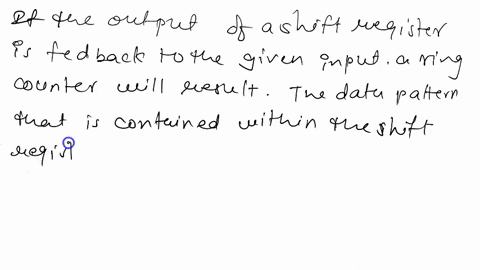 If the output of a shift register
is fedback to the given input. a ring
counter will result. The data pattern
that is contained within the shift
regist